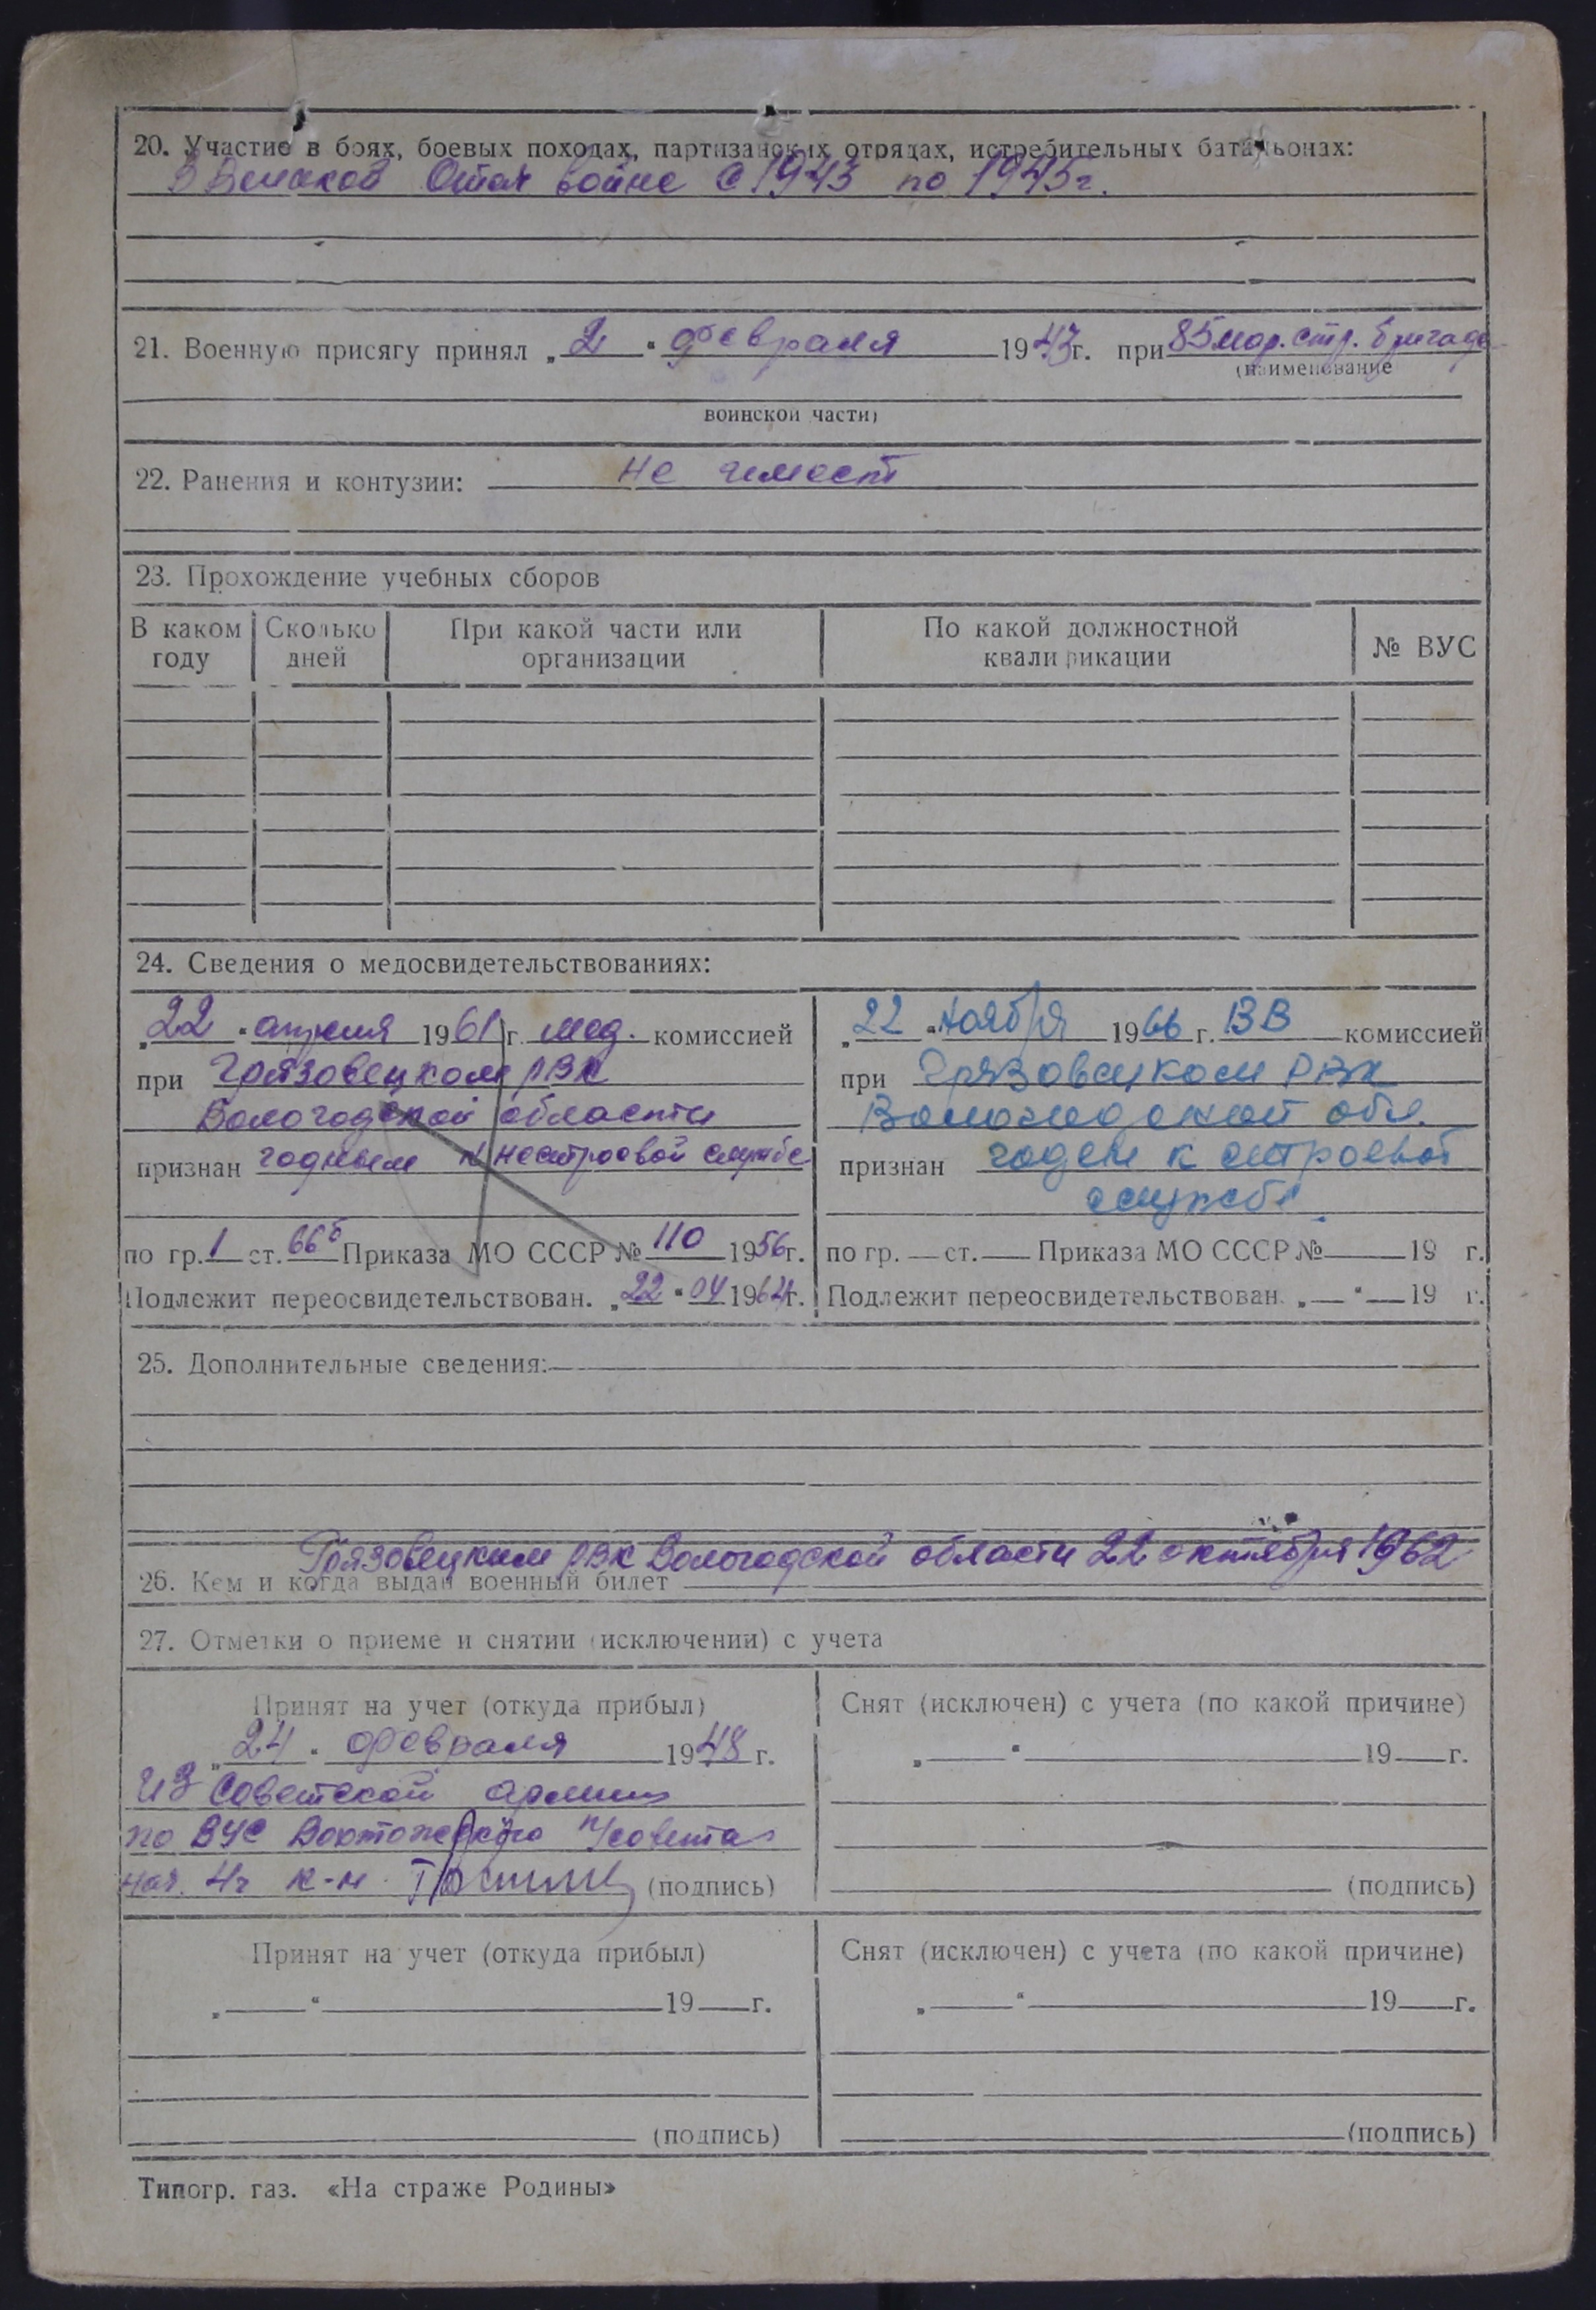 20. Участие в боях, боевых походах, партизанских отрядах, истребительных батальонах:
В Великой Отеч войне с 1943 по 1945 г.
21. Военную присягу принял „2“ февраля 1943 г. при 85 мор. стр. бригаде
(наименование
воинской части)
22. Ранения и контузии: не имеет
23. Прохождение учебных сборов
В каком году Сколько дней При какой части или организации По какой должностной квалификации № ВУС
24. Сведения о медосвидетельствованиях:
„22“ апреля 1961 г. мед. комиссией
при Грязовецком РВК
Вологодской области
признан годным к нестроевой службе
по гр. 1 ст. 66б Приказа МО СССР № 110 1956 г.
Подлежит переосвидетельствован. „22“ 04 1964 г.
„22“ ноября 1966 г. ВВ комиссией
при Грязовецком РВК
Вологодской обл.
признан годен к строевой
службе
по гр. — ст. — Приказа МО СССР № 19 г.
Подлежит переосвидетельствован. „—“ — 19 г.
25. Дополнительные сведения:
Грязовецким РВК Вологодской области 22 октября 1962
26. Кем и когда выдан военный билет
27. Отметки о приеме и снятии (исключении) с учета
Принят на учет (откуда прибыл)
„24“ февраля 1948 г.
из Советской армии
по ВУС с/совета
нач. 4ч к-н (подпись)
Снят (исключен) с учета (по какой причине)
„ “ 19 г.
(подпись)
Принят на учет (откуда прибыл)
„ “ 19 г.
(подпись)
Снят (исключен) с учета (по какой причине)
„ “ 19 г.
(подпись)
Типогр. газ. «На страже Родины»